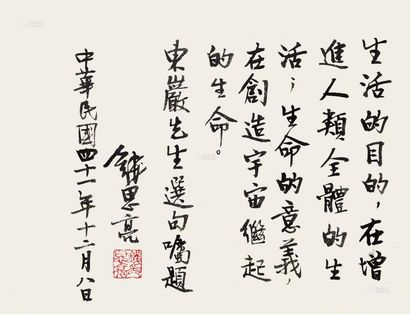 生活的目的，在增
進人類全體的生
活；生命的意義，
在創造宇宙繼起
的生命。
東巖先生選句囑題
錢思亮
中華民國四十一年十二月八日